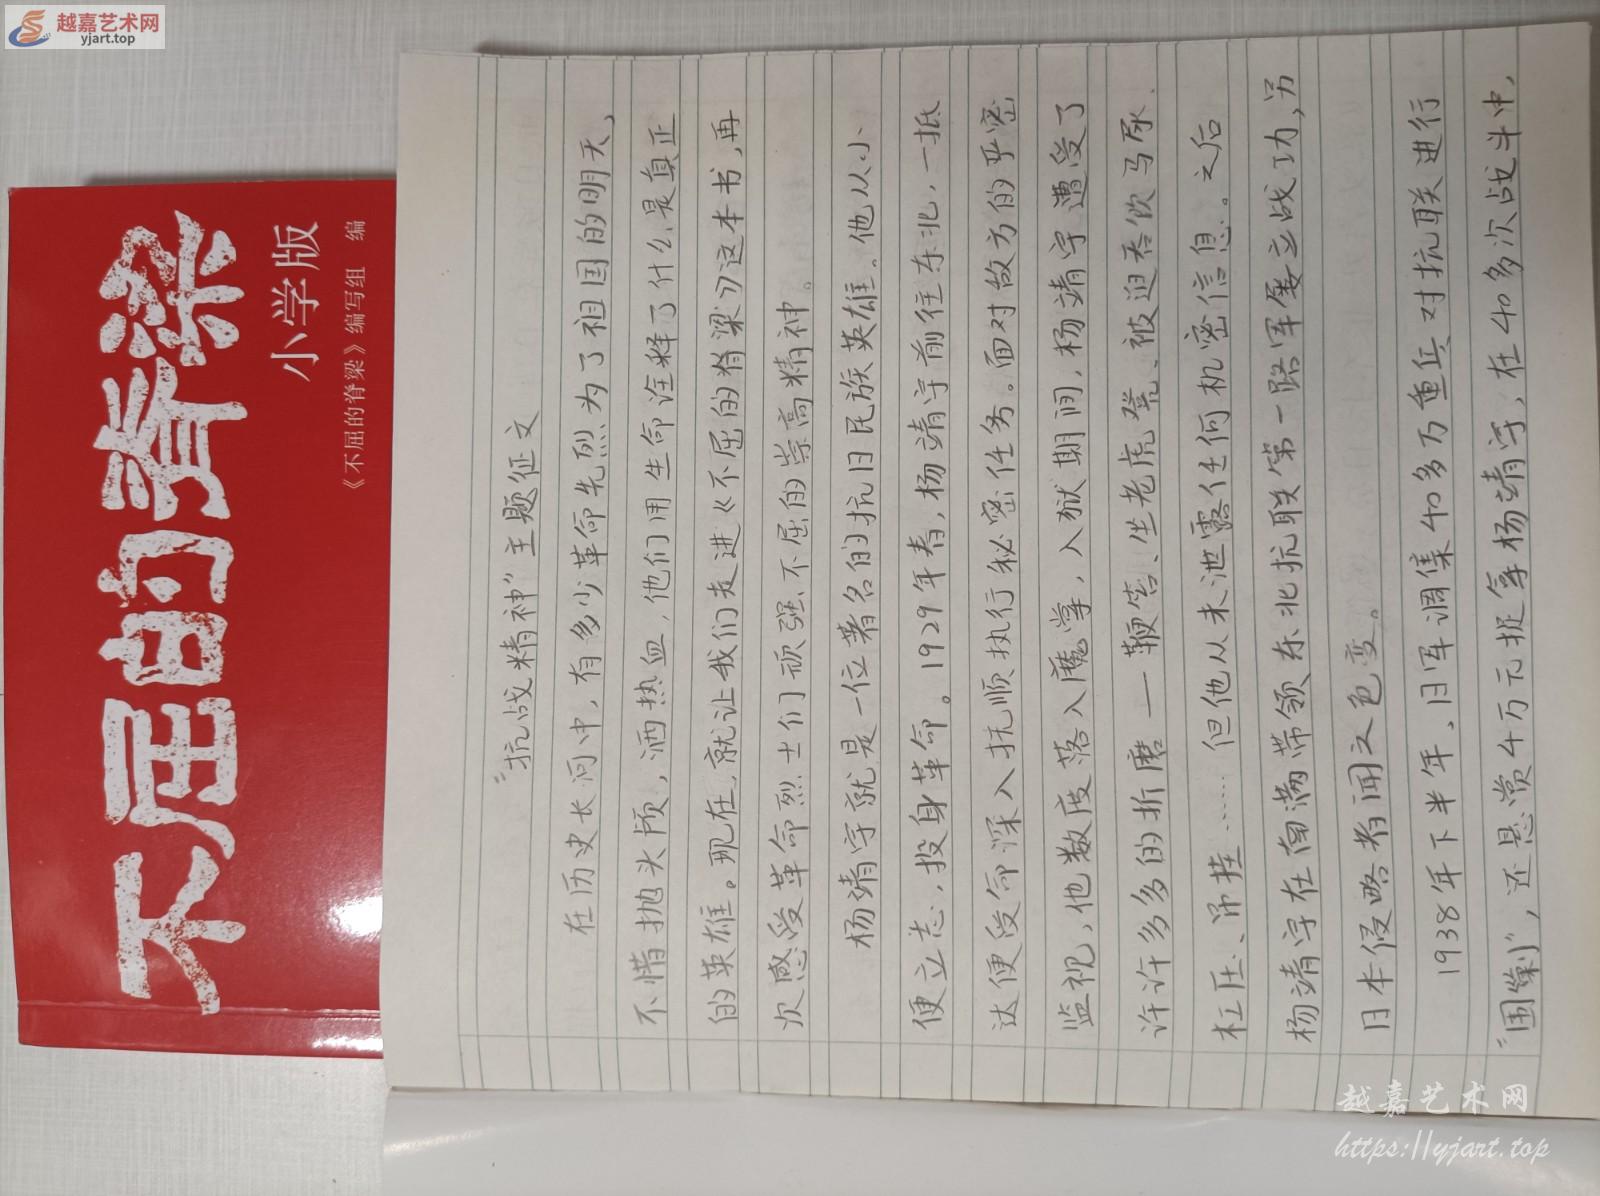 越嘉艺术网
yjart.top
不屈的脊梁
小学版
《不屈的脊梁》编写组 编
“抗战精神”主题征文
在历史长河中,有多少革命先烈为了祖国的明天,
不惜抛头颅,洒热血,他们用生命诠释了什么是真正
的英雄。现在,就让我们走进《不屈的脊梁》这本书,再
次感受革命烈士们顽强不屈的崇高精神。
杨靖宇就是一位著名的抗日民族英雄。他从小
便立志,投身革命。1929年春,杨靖宇前往东北,一抵
达便受命深入抚顺执行秘密任务。面对敌方的严密
监视,他数度落入魔掌,入狱期间,杨靖宇遭受了
许许多多的折磨—鞭笞、坐老虎凳、被迫吞饮马尿、
杠压、吊挂……但他从未泄露任何机密信息。之后
杨靖宇在南满带领东北抗联第一路军屡立战功,另
日本侵略者闻之色变。
1938年下半年,日军调集40多万重兵对抗联进行
“围剿”,还悬赏4万元捉拿杨靖宇,在40多次战斗中,
越嘉艺术网
https://yjart.top